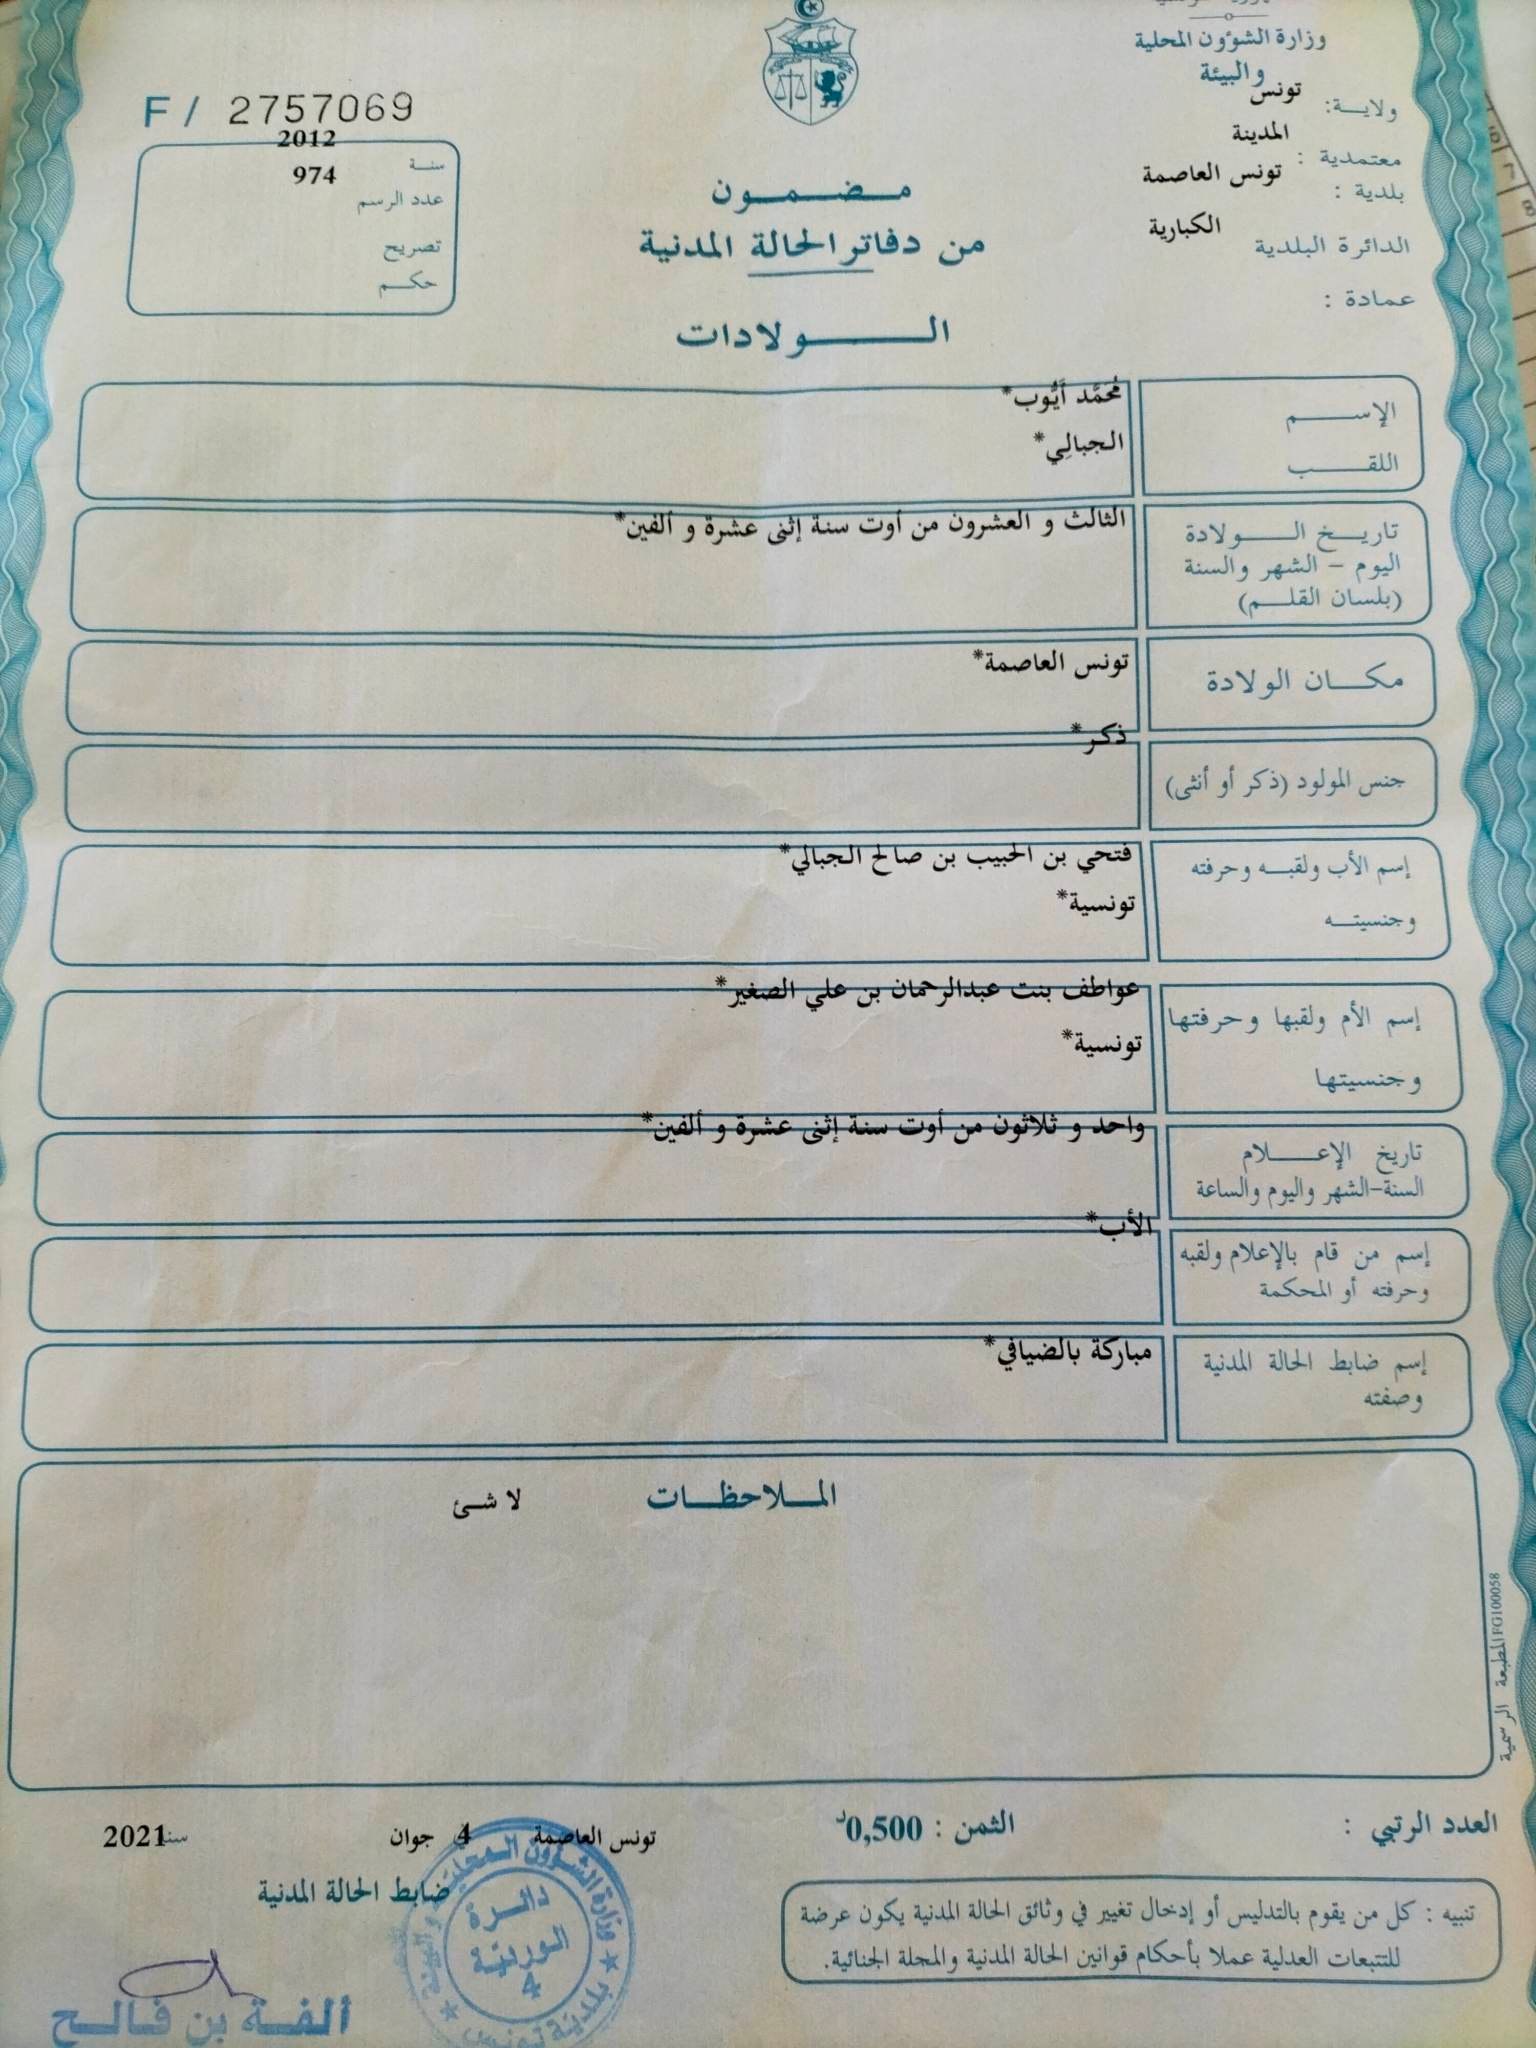 وزارة الشؤون المحلية
والبيئة
ولاية: تونس
معتمدية : المدينة
بلدية : تونس العاصمة
الدائرة البلدية الكبارية
عمادة :
F / 2757069
سنة 2012
عدد الرسم 974
تصريح
حكم
مضمون
من دفاتر الحالة المدنية
الولادات
الإسم مُحَمَّد أَيُّوب*
اللقب الجبالِي*
تاريخ الولادة الثالث و العشرون من أوت سنة إثنى عشرة و ألفين*
اليوم - الشهر والسنة
(بلسان القلم)
مكان الولادة تونس العاصمة*
جنس المولود (ذكر أو أنثى) ذكر*
إسم الأب ولقبه وحرفته فتحي بن الحبيب بن صالح الجبالي*
وجنسيته تونسية*
إسم الأم ولقبها وحرفتها عواطف بنت عبدالرحمان بن علي الصغير*
وجنسيتها تونسية*
تاريخ الإعلام واحد و ثلاثون من أوت سنة إثنى عشرة و ألفين*
السنة-الشهر واليوم والساعة
إسم من قام بالإعلام ولقبه الأب*
وحرفته أو المحكمة
إسم ضابط الحالة المدنية مباركة بالضيافي*
وصفته
الملاحظات لا شئ
المطبعة الرسمية FG100058
العدد الرتبي :
الثمن : 0,500د
تونس العاصمة في 4 جوان سنة 2021
ضابط الحالة المدنية
تنبيه : كل من يقوم بالتدليس أو إدخال تغيير في وثائق الحالة المدنية يكون عرضة
للتتبعات العدلية عملا بأحكام قوانين الحالة المدنية والمجلة الجنائية.
وزارة الشؤون المحلية والبيئة
بلدية تونس
دائرة
الوردية
4
ألفة بن فالح